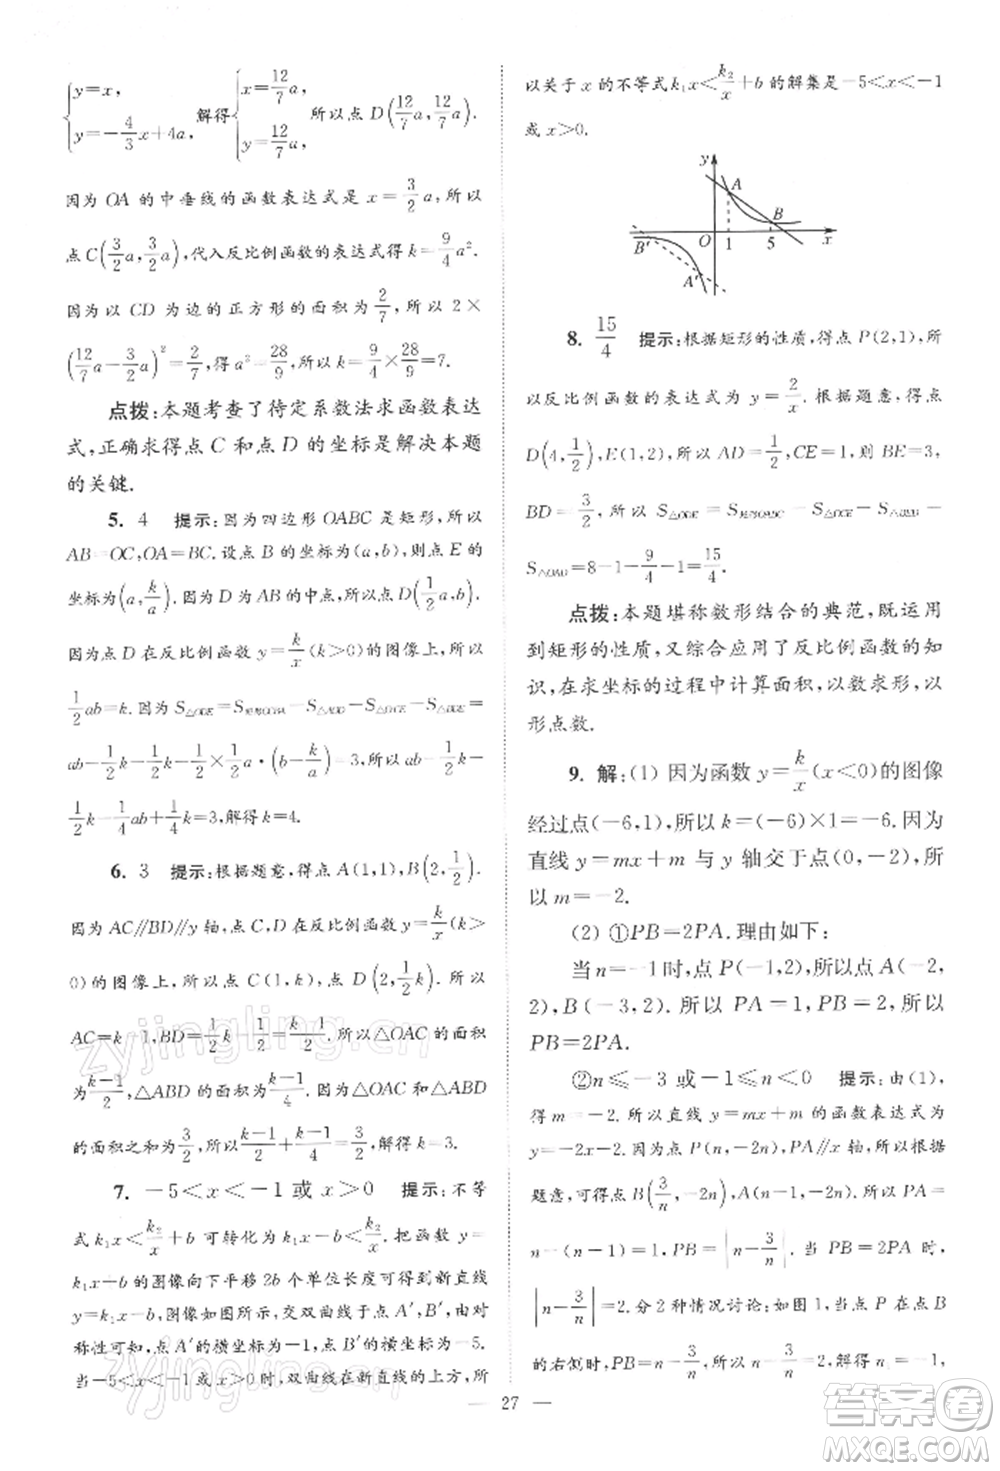 {y=x, y=-4/3x+4a, 解得 {x=12/7a, y=12/7a, 所以点 D(12/7a,12/7a).
因为 OA 的中垂线的函数表达式是 x=3/2a,所以
点 C(3/2a,3/2a),代入反比例函数的表达式得 k=9/4a².
因为以 CD 为边的正方形的面积为2/7,所以 2×
(12/7a-3/2a)²=2/7,得 a²=28/9,所以 k=9/4×28/9=7.
点拨:本题考查了待定系数法求函数表达
式,正确求得点 C 和点 D 的坐标是解决本题
的关键.
5. 4 提示:因为四边形 OABC 是矩形,所以
AB=OC,OA=BC.设点 B 的坐标为(a,b),则点 E 的
坐标为(a,k/a).因为 D 为 AB 的中点,所以点 D(1/2a,b).
因为点 D 在反比例函数 y=k/x(k>0)的图像上,所以
1/2ab=k.因为 S△ODE=S矩形OCBA-S△AOD-S△OCE-S△BDE=
ab-1/2k-1/2k-1/2×1/2a·(b-k/a)=3,所以 ab-1/2k-
1/2k-1/4ab+1/4k=3,解得 k=4.
6. 3 提示:根据题意,得点 A(1,1),B(2,1/2).
因为 AC//BD//y 轴,点 C,D 在反比例函数 y=k/x(k>
0)的图像上,所以点 C(1,k),点 D(2,k/2),所以
AC=k-1,BD=1/2k-1/2=(k-1)/2,所以△OAC 的面积
为(k-1)/2,△ABD 的面积为(k-1)/4.因为△OAC 和△ABD
的面积之和为3/2,所以(k-1)/2+(k-1)/4=3/2,解得 k=3.
7. -5<x<-1 或 x>0 提示:不等
式 k₁x<k₂/x+b 可转化为 k₁x-b<k₂/x.把函数 y=
k₁x+b 的图像向下平移 2b 个单位长度可得到新直线
y=k₁x-b,图像如图所示,交双曲线于点 A′,B′,由对
称性可知,点A′的横坐标为-1,点 B′的横坐标为-5.
当-5<x<-1 或x>0时,双曲线在新直线的上方,所
以关于 x 的不等式 k₁x<k₂/x+b 的解集是-5<x<-1
或 x>0.
y
A
B
B′ O 1 5 x
A′
8. 15/4 提示:根据矩形的性质,得点 P(2,1),所
以反比例函数的表达式为 y=2/x.根据题意,得点
D(4,1/2),E(1,2),所以 AD=1/2,CE=1,则 BE=3,
BD=3/2,所以 S△ODE=S矩形OABC-S△BDE-S△OCE-
S△OAD=8-1-9/4-1=15/4.
点拨:本题堪称数形结合的典范,既运用
到矩形的性质,又综合应用了反比例函数的知
识,在求坐标的过程中计算面积,以数求形,以
形点数.
9. 解:(1) 因为函数 y=k/x(x<0)的图像
经过点(-6,1),所以 k=(-6)×1=-6.因为
直线 y=mx+m 与 y 轴交于点(0,-2),所
以 m=-2.
(2) ①PB=2PA.理由如下:
当n=-1时,点 P(-1,2),所以点 A(-2,
2),B(-3,2).所以 PA=1,PB=2,所以
PB=2PA.
②n≤-3 或-1≤n<0 提示:由(1),
得 m=-2.所以直线 y=mx+m 的函数表达式为
y=-2x-2.因为点 P(n,-2n),PA//x 轴,所以根据
题意,可得点 B(3/n,-2n),A(n-1,-2n).所以 PA=
n-(n-1)=1,PB=|n-3/n|.当 PB=2PA 时,
|n-3/n|=2.分 2 种情况讨论:如图1,当点 P 在点 B
的右侧时,PB=n-3/n,所以 n-3/n=2,解得 n₁=-1,
— 27 —
zyjingling.cn
zyjingling.cn
答案圈
MXQE.COM